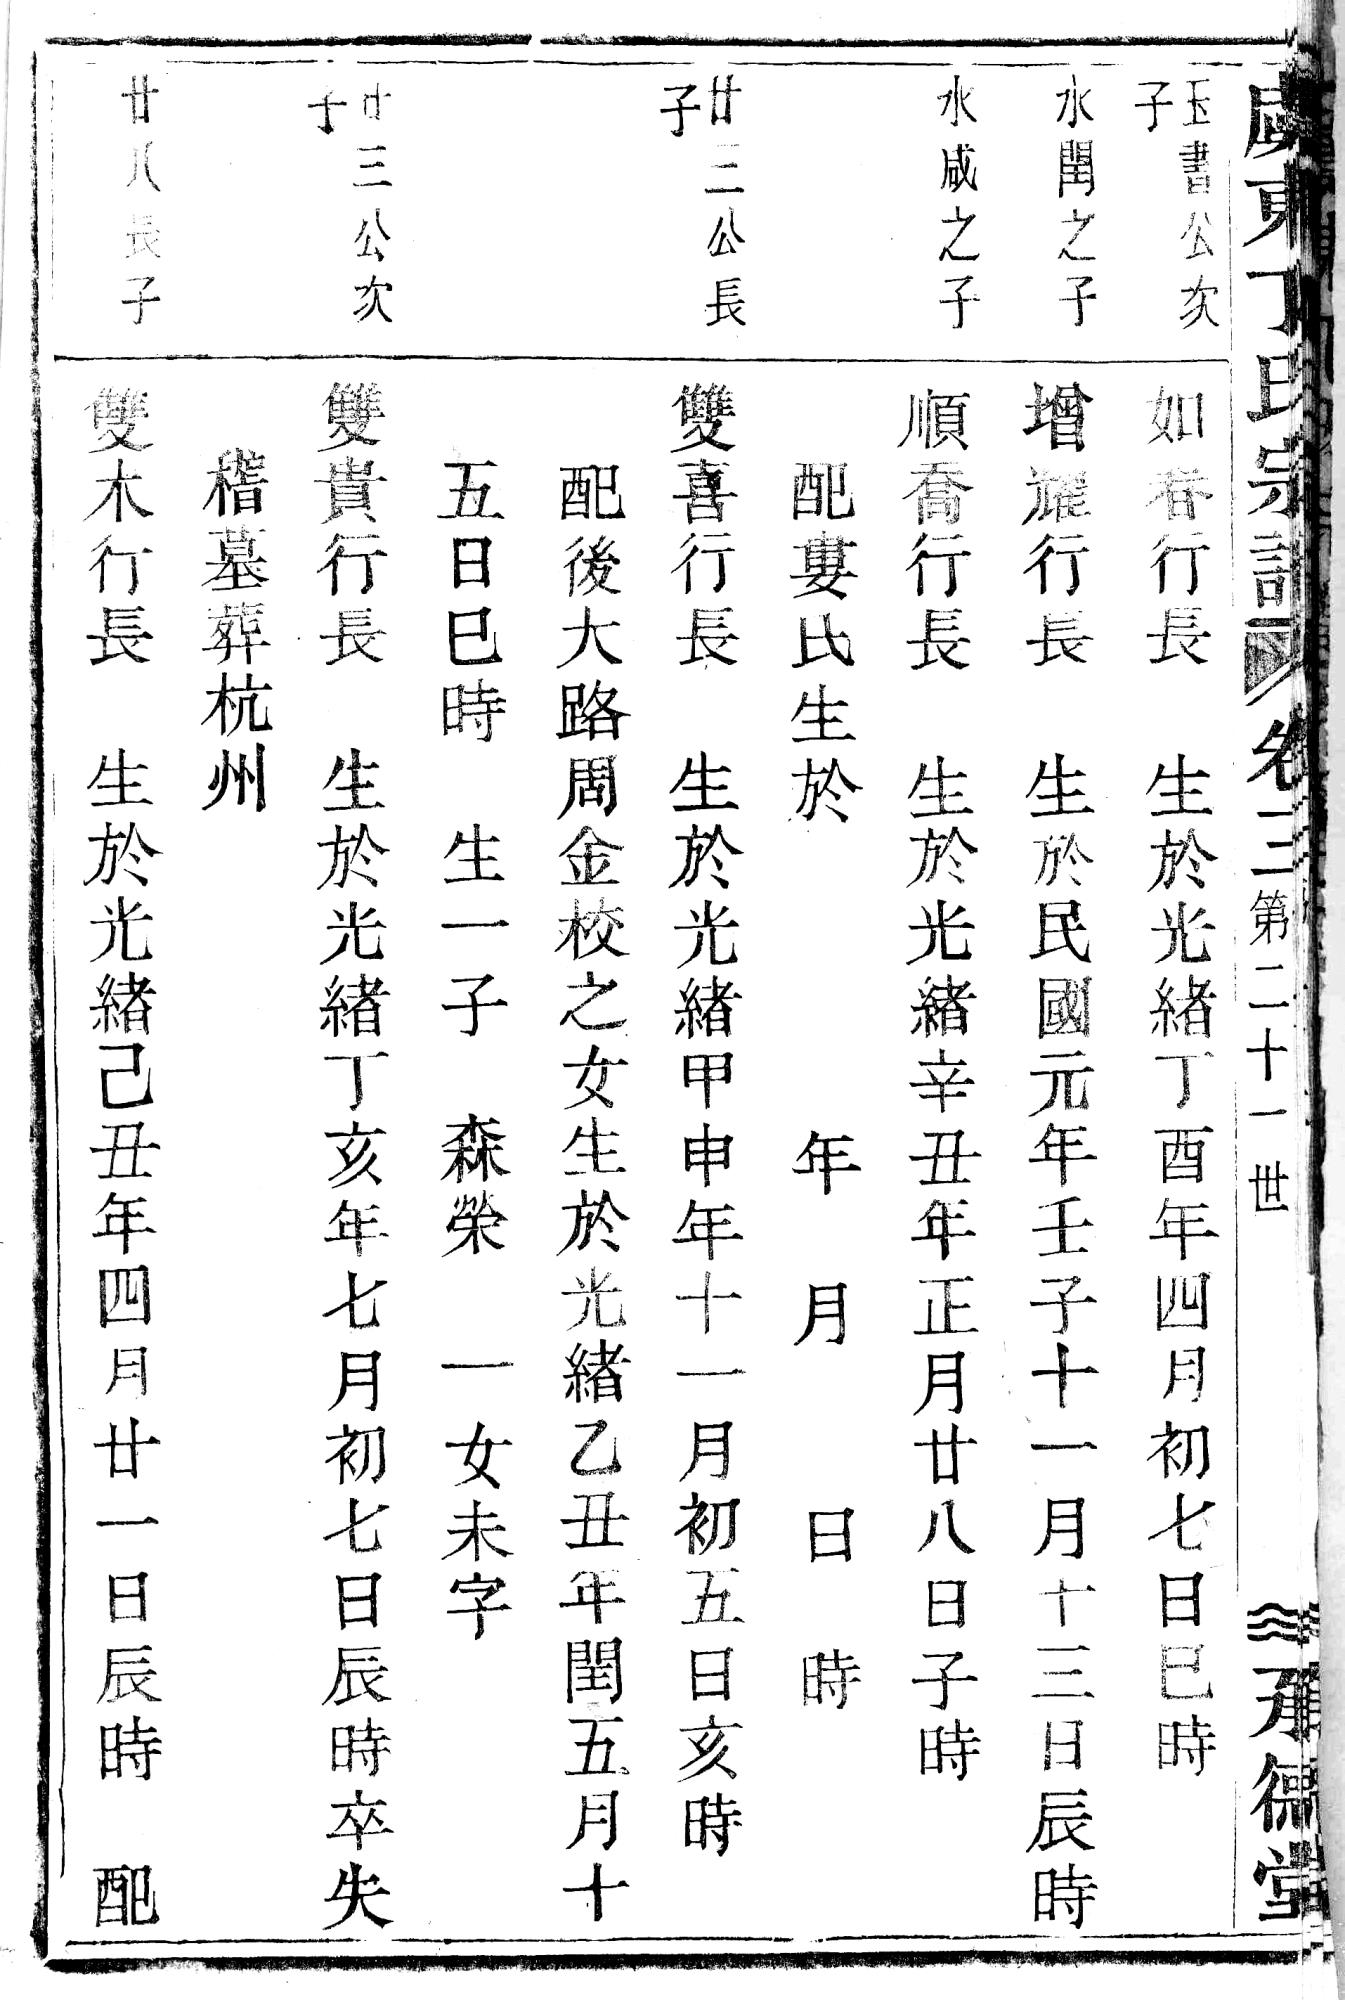 東丁氏宗譜 卷三 第二十一世 承德堂
玉書公次子
如春行長 生於光緒丁酉年四月初七日巳時
水閏之子
增耀行長 生於民國元年壬子十一月十三日辰時
水咸之子
順喬行長 生於光緒辛丑年正月廿八日子時
配婁氏生於 年 月 日 時
廿三公長子
雙喜行長 生於光緒甲申年十一月初五日亥時
配後大路周金校之女生於光緒乙丑年閏五月十
五日巳時 生一子 森榮 一女未字
廿三公次子
雙貴行長 生於光緒丁亥年七月初七日辰時卒失
稽墓葬杭州
廿八長子
雙木行長 生於光緒己丑年四月廿一日辰時 配